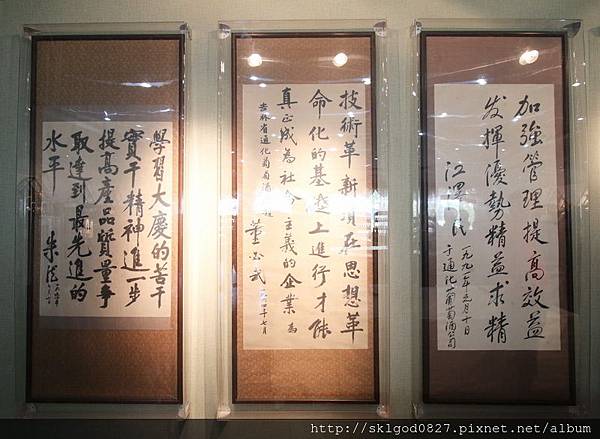 加強管理提高效益
發揮優勢精益求精
江澤民
一九九一年元月十日
于通化葡萄酒公司
技術革新須在思想革
命化的基礎上進行才能
真正成為社會主義的企業為
吉林省通化葡萄酒
董必武
學習大慶的苦干
實干精神進一步
提高產品質量爭
取達到最先進的
水平
朱德
http://sklgod0827.pixnet.net/album